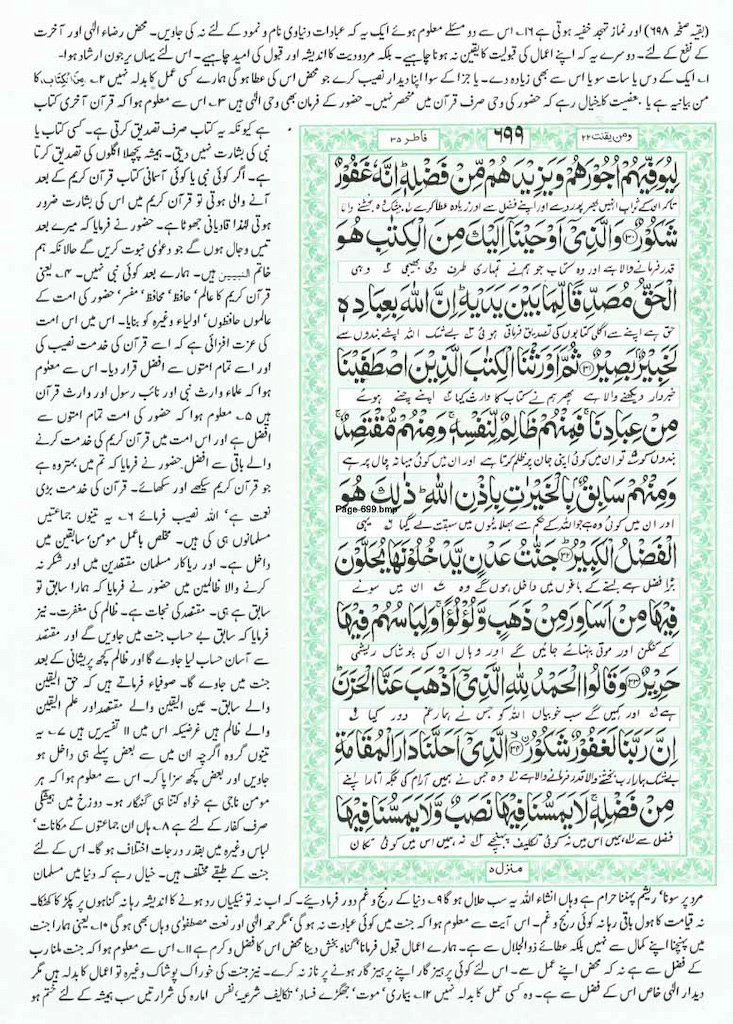 (بقیہ صفحہ ۶۹۸) اور نماز تہجد خفیہ ہوتی ہے ۱۶؎ اس سے دو مسئلے معلوم ہوئے ایک یہ کہ عبادات دنیاوی نام و نمود کے لئے نہ کی جاویں۔ محض رضاء الٰہی اور آخرت
کے نفع کے لئے۔ دوسرے یہ کہ اپنے اعمال کی قبولیت کا یقین نہ ہونا چاہیے۔ بلکہ مردودیت کا اندیشہ اور قبول کی امید چاہیے۔ اس لئے یہاں یرجون ارشاد ہوا۔
۱؎ ایک کے دس یا سات سو یا اس سے بھی زیادہ دے۔ یا جزا کے سوا اپنا دیدار نصیب کرے جو محض اس کی عطا ہوگی ہمارے کسی عمل کا بدلہ نہیں ۲؎ مِنَ الْکِتَاب کا
من بیانیہ ہے یا بعضیت کا خیال رہے کہ حضور کی وحی صرف قرآن میں منحصر نہیں۔ حضور کے فرمان بھی وحی الٰہی ہیں ۳؎ اس سے معلوم ہوا کہ قرآن آخری کتاب
ہے کیونکہ یہ کتاب صرف تصدیق کرتی ہے۔ کسی کتاب یا
نبی کی بشارت نہیں دیتی۔ ہمیشہ پچھلا اگلوں کی تصدیق کرتا
ہے۔ اگر کوئی نبی یا کوئی آسمانی کتاب قرآن کریم کے بعد
آنے والی ہوتی تو قرآن کریم میں اس کی بشارت ضرور
ہوتی لہٰذا قادیانی جھوٹا ہے۔ حضور نے فرمایا کہ میرے بعد
تیس دجال ہوں گے جو دعویٰ نبوت کریں گے حالانکہ ہم
خاتم النبیین ہیں۔ ہمارے بعد کوئی نبی نہیں۔ ۴؎ یعنی
قرآن کریم کا عالم' حافظ' محافظ' مفسر' حضور کی امت کے
عالموں حافظوں' اولیاء وغیرہ کو بنایا۔ اس میں اس امت
کی عزت افزائی ہے کہ اسے قرآن کی خدمت نصیب کی
اور اسے تمام امتوں سے افضل قرار دیا۔ اس سے معلوم
ہوا کہ علماء وارث نبی اور نائب رسول اور وارث قرآن
ہیں ۵؎ معلوم ہوا کہ حضور کی امت تمام امتوں سے
افضل ہے اور اس امت میں قرآن کریم کی خدمت کرنے
والے باقی سے افضل۔ حضور نے فرمایا کہ تم میں بہتر وہ ہے
جو قرآن کریم سیکھے اور سکھائے۔ قرآن کی خدمت بڑی
نعمت ہے' اللہ نصیب فرمائے ۶؎ یہ تینوں جماعتیں
مسلمانوں ہی کی ہیں۔ مخلص باعمل مومن' سابقین میں
داخل ہے۔ اور ریاکار مسلمان مقتصدین میں اور شکر نہ
کرنے والا ظالمین میں حضور نے فرمایا کہ ہمارا سابق تو
سابق ہے ہی۔ مقتصد کی نجات ہے۔ ظالم کی مغفرت۔ نیز
فرمایا کہ سابق بے حساب جنت میں جاویں گے اور مقتصد
سے آسان حساب لیا جاوے گا اور ظالم کچھ پریشانی کے بعد
جنت میں جاوے گا۔ صوفیاء فرماتے ہیں کہ حق الیقین
والے سابق۔ عین الیقین والے مقتصد اور علم الیقین
والے ظالم ہیں غرضیکہ اس میں ۱۱ تفسیریں ہیں ۷؎ یہ
تینوں گروہ اگرچہ ان میں سے بعض پہلے ہی داخل ہو
جاویں اور بعض کچھ سزا پا کر۔ اس سے معلوم ہوا کہ ہر
مومن ناجی ہے خواہ کتنا ہی گنہگار ہو۔ دوزخ میں ہمیشگی
صرف کفار کے لئے ہے ۸؎ ہاں ان جماعتوں کے مکانات'
لباس وغیرہ میں بقدر درجات اختلاف ہو گا۔ اس کے لئے
جنت کے طبقے مختلف ہیں۔ خیال رہے کہ دنیا میں مسلمان
ومن یقنت ۲۲
۶۹۹
فاطر ۳۵
لِیُوَفِّیَهُمْ اُجُوْرَهُمْ وَیَزِیْدَهُمْ مِّنْ فَضْلِهٖ ؕ اِنَّهٗ غَفُوْرٌ
تاکہ ان کے ثواب انہیں بھرپور دے اور اپنے فضل سے اور زیادہ عطا کرے بیشک وہ بخشنے والا
شَكُوْرٌ ﴿۳۰﴾ وَالَّذِیْۤ اَوْحَیْنَاۤ اِلَیْكَ مِنَ الْكِتٰبِ هُوَ
قدر فرمانے والا ہے اور وہ کتاب جو ہم نے تمہاری طرف وحی بھیجی وہی
الْحَقُّ مُصَدِّقًا لِّمَا بَیْنَ یَدَیْهِ ؕ اِنَّ اللّٰهَ بِعِبَادِهٖ
حق ہے اپنے سے اگلی کتابوں کی تصدیق فرماتی ہوئی بے شک اللہ اپنے بندوں سے
لَخَبِیْرٌۢ بَصِیْرٌ ﴿۳۱﴾ ثُمَّ اَوْرَثْنَا الْكِتٰبَ الَّذِیْنَ اصْطَفَیْنَا
خبردار دیکھنے والا ہے پھر ہم نے کتاب کا وارث کیا اپنے چنے ہوئے
مِنْ عِبَادِنَا ۚ فَمِنْهُمْ ظَالِمٌ لِّنَفْسِهٖ ۚ وَمِنْهُمْ مُّقْتَصِدٌ ۚ
بندوں کو تو ان میں کوئی اپنی جان پر ظلم کرتا ہے اور ان میں کوئی میانہ چال پر ہے
وَمِنْهُمْ سَابِقٌۢ بِالْخَیْرٰتِ بِاِذْنِ اللّٰهِ ؕ ذٰلِكَ هُوَ
Page-699.bmp
اور ان میں کوئی وہ ہے جو اللہ کے حکم سے بھلائیوں میں سبقت لے گیا یہی
الْفَضْلُ الْكَبِیْرُ ﴿۳۲﴾ جَنّٰتُ عَدْنٍ یَّدْخُلُوْنَهَا یُحَلَّوْنَ
بڑا فضل ہے بسنے کے باغوں میں داخل ہوں گے وہ ان میں سونے
فِیْهَا مِنْ اَسَاوِرَ مِنْ ذَهَبٍ وَّلُؤْلُؤًا ۚ وَلِبَاسُهُمْ فِیْهَا
کے کنگن اور موتی پہنائے جائیں گے اور وہاں ان کی پوشاک ریشمی
حَرِیْرٌ ﴿۳۳﴾ وَقَالُوا الْحَمْدُ لِلّٰهِ الَّذِیْۤ اَذْهَبَ عَنَّا الْحَزَنَ ؕ
ہے اور کہیں گے سب خوبیاں اللہ کو جس نے ہمارا غم دور کیا
اِنَّ رَبَّنَا لَغَفُوْرٌ شَكُوْرٌ ﴿۳۴﴾ الَّذِیْۤ اَحَلَّنَا دَارَ الْمُقَامَةِ
بے شک ہمارا رب بخشنے والا قدر فرمانے والا ہے وہ جس نے ہمیں آرام کی جگہ اتارا اپنے
مِنْ فَضْلِهٖ ۚ لَا یَمَسُّنَا فِیْهَا نَصَبٌ وَّلَا یَمَسُّنَا فِیْهَا
فضل سے ہمیں اس میں نہ کوئی تکلیف پہنچے نہ ہمیں اس میں کوئی تکان
منزل ۵
مرد پر سونا' ریشم پہننا حرام ہے وہاں انشاء اللہ یہ سب حلال ہو گا ۹؎ دنیا کے رنج و غم دور فرما دیئے۔ کہ اب نہ تو نیکیاں رد ہونے کا اندیشہ رہا نہ گناہوں پر پکڑ کا کھٹکا۔
نہ قیامت کا ہول باقی رہا نہ کوئی رنج و غم۔ اس آیت سے معلوم ہوا کہ جنت میں کوئی عبادت نہ ہو گی' مگر حمد الٰہی اور نعت مصطفوی وہاں بھی ہو گی ۱۰؎ یعنی ہمارا جنت
میں پہنچنا اپنے کمال سے نہیں بلکہ عطائے ذوالجلال سے ہے۔ ہمارے اعمال قبول فرمانا' گناہ بخش دینا محض اس کا فضل و کرم ہے ۱۱؎ اس سے معلوم ہوا کہ جنت ملنا رب
کے فضل سے ہے نہ کہ محض اپنے عمل سے۔ اس لئے کوئی پرہیز گار اپنے پرہیز گار ہونے پر ناز نہ کرے۔ نیز جنت کی خوراک پوشاک وغیرہ تو اعمال کا بدلہ ہیں مگر
دیدار الٰہی خاص اس کے فضل سے ہے۔ وہ کسی عمل کا بدلہ نہیں ۱۲؎ بیماری' موت' جھگڑے فساد' تکالیف شرعیہ' نفس امارہ کی شرارتیں سب ہمیشہ کے لئے ختم ہو